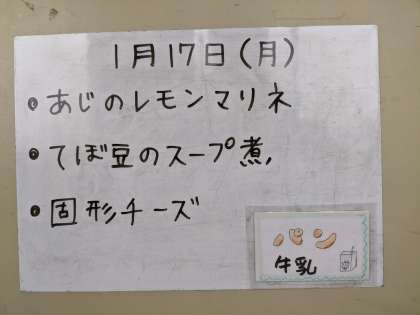 1月17日(月)
• あじのレモンマリネ
• てぼ豆のスープ煮
• 固形チーズ
パン
牛乳